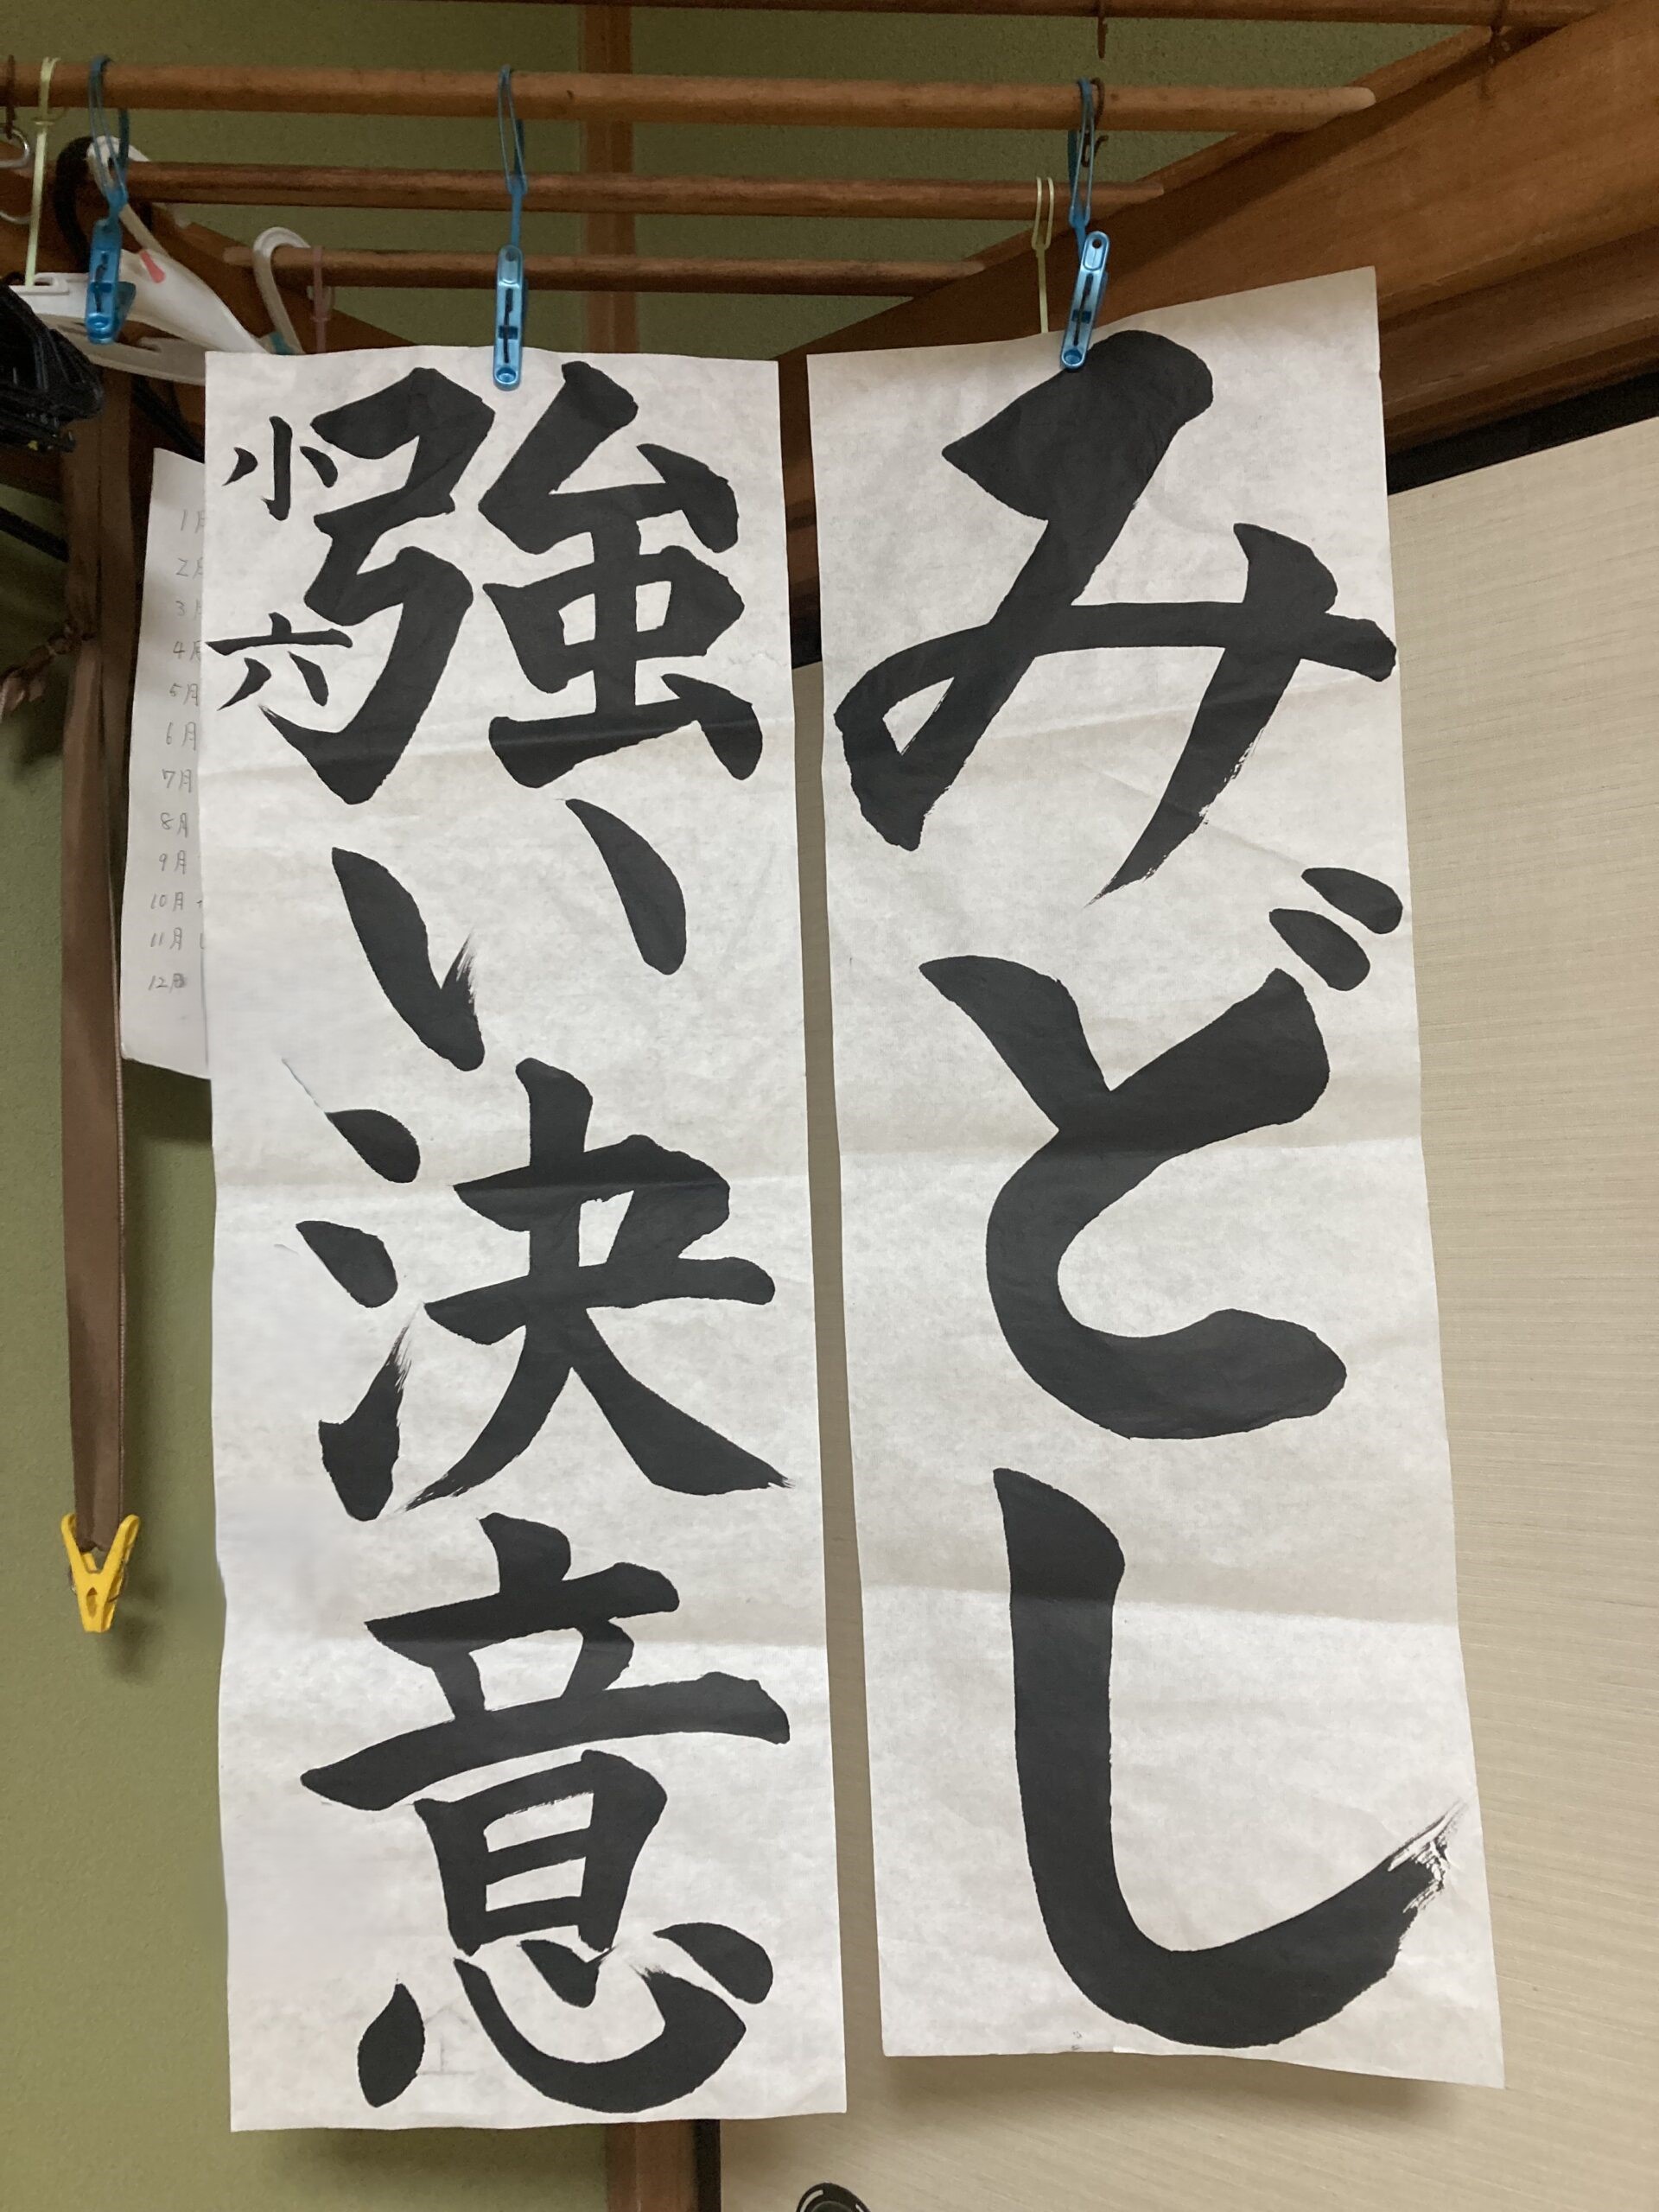 みどし
強い決意
小六
1月
2月
3月
4月
5月
6月
7月
8月
9月
10月
11月
12月